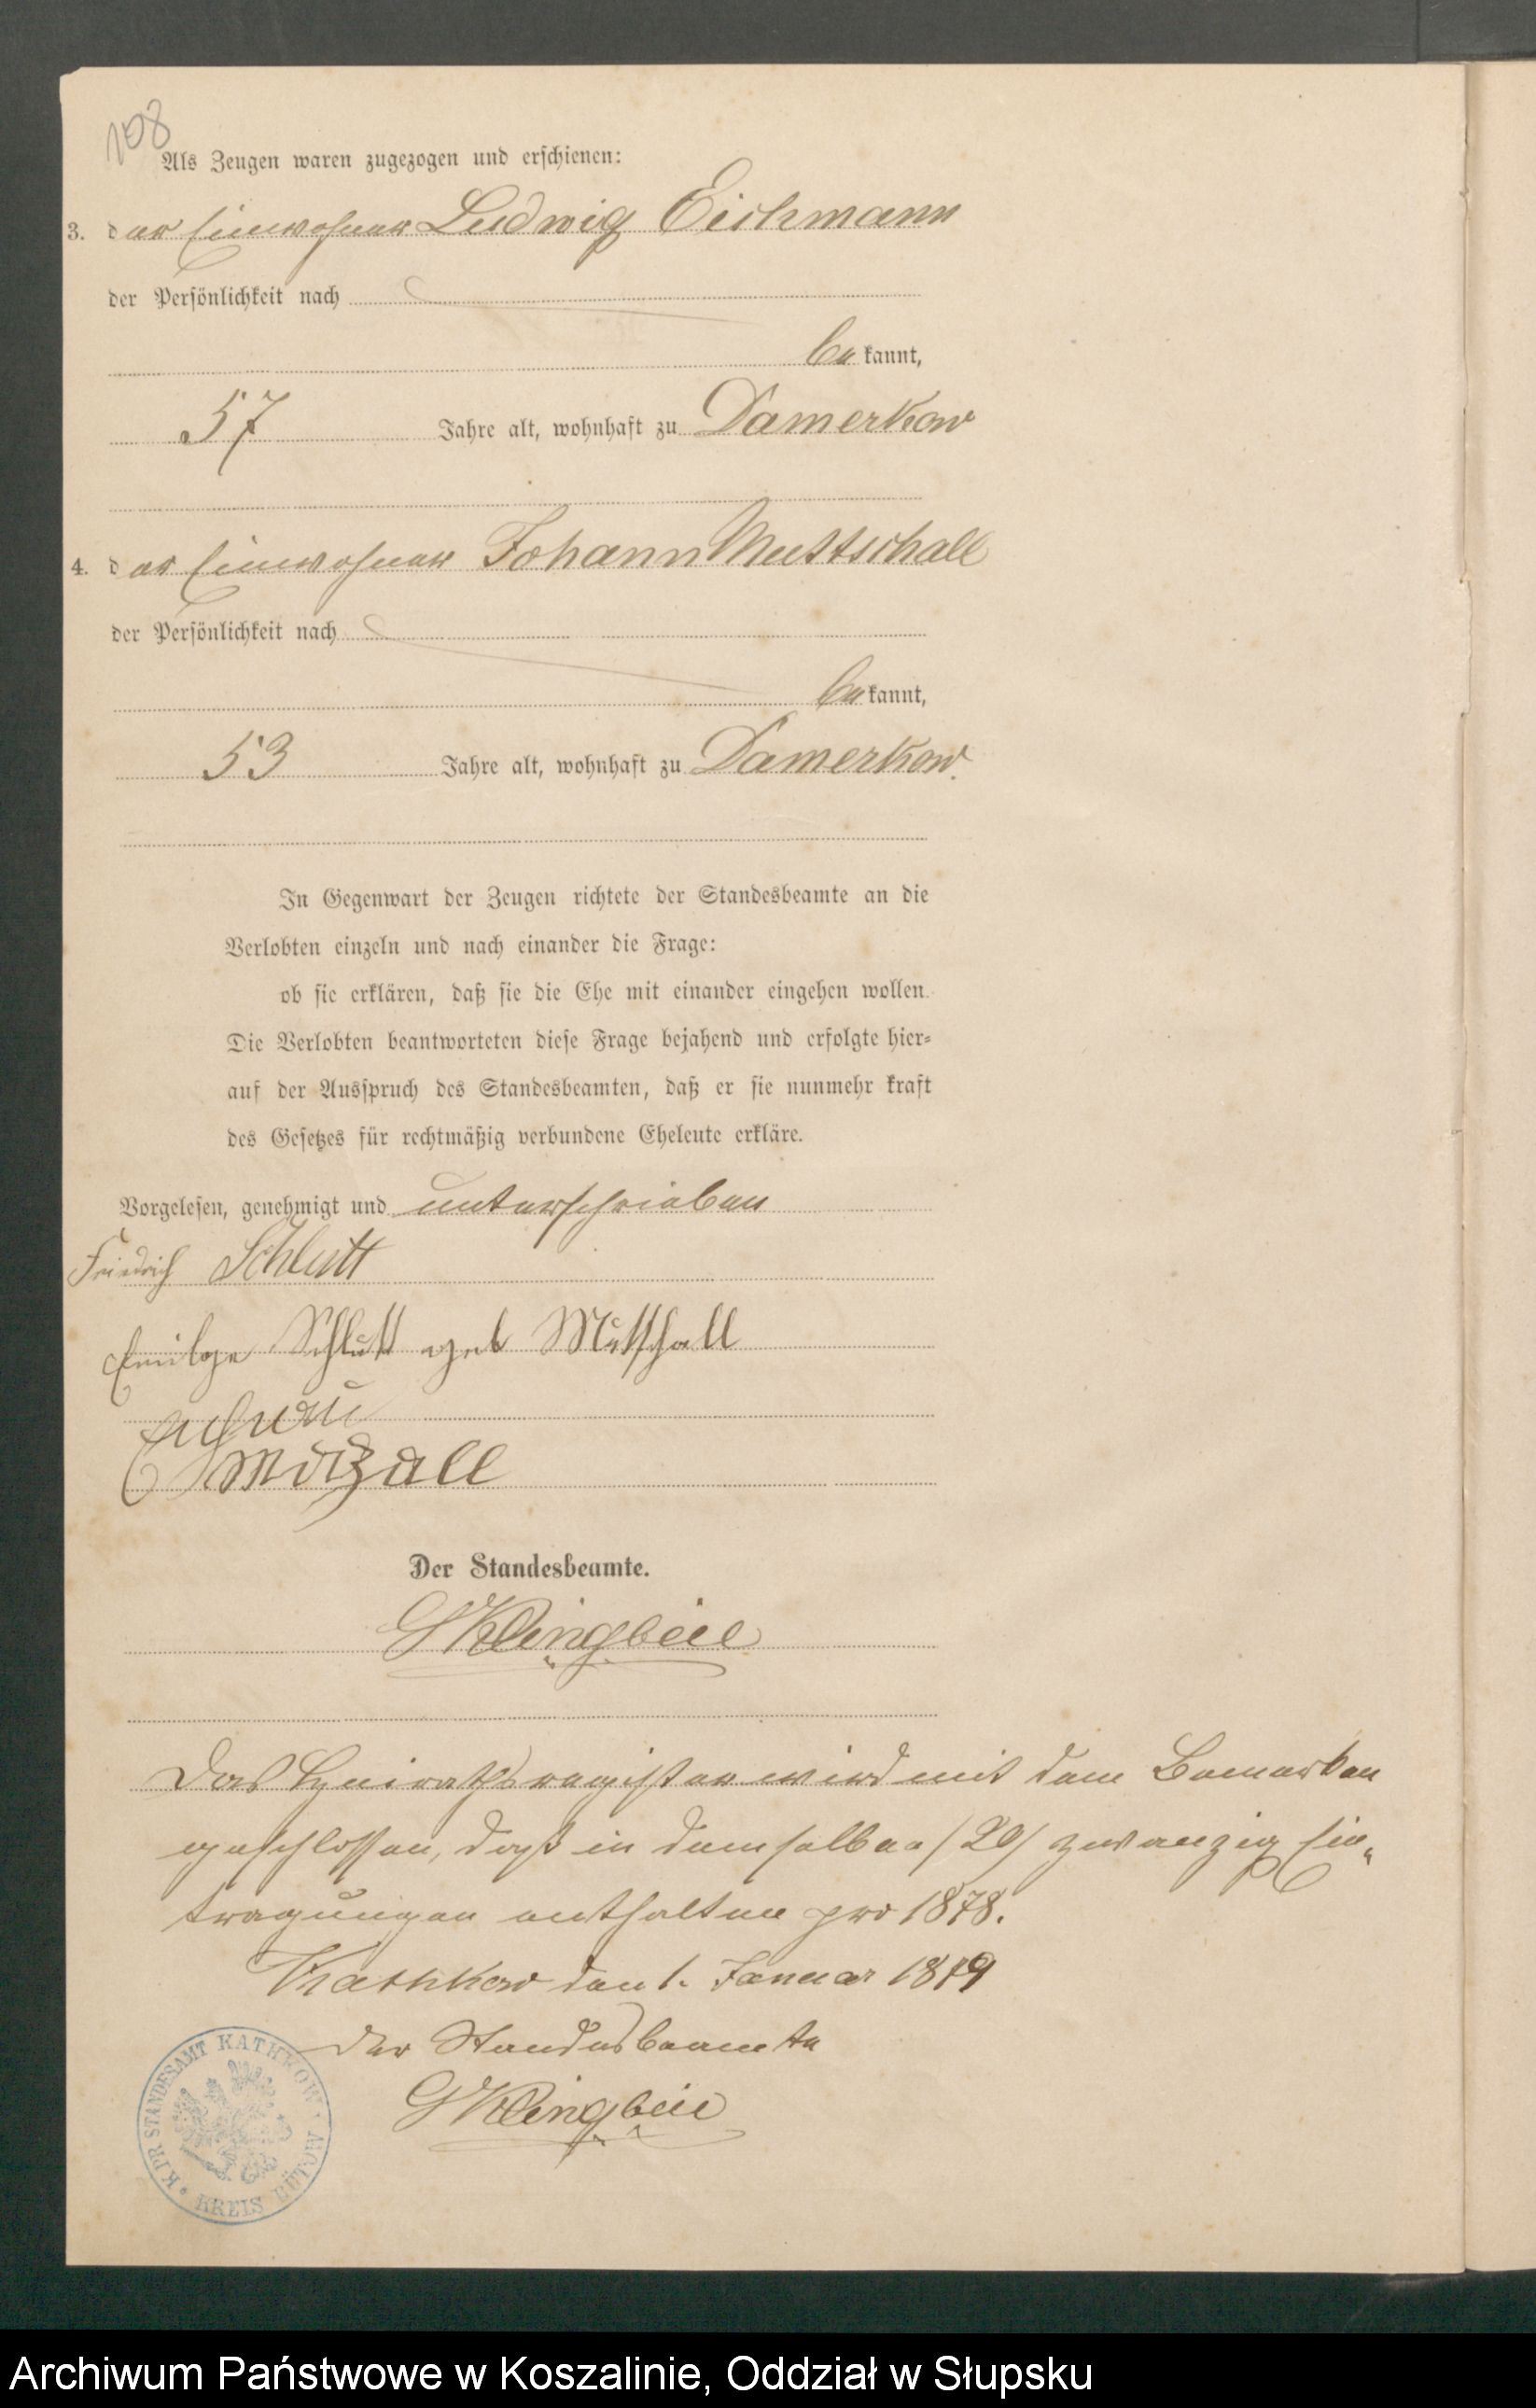 108
Als Zeugen waren zugezogen und erschienen:
3. der Einwohner Ludwig Eichmann
der Persönlichkeit nach
bekannt,
57 Jahre alt, wohnhaft zu Damerkow
4. der Einwohner Johann Muttschall
der Persönlichkeit nach
bekannt,
53 Jahre alt, wohnhaft zu Damerkow.
In Gegenwart der Zeugen richtete der Standesbeamte an die
Verlobten einzeln und nach einander die Frage:
ob sie erklären, daß sie die Ehe mit einander eingehen wollen.
Die Verlobten beantworteten diese Frage bejahend und erfolgte hier-
auf der Ausspruch des Standesbeamten, daß er sie nunmehr kraft
des Gesetzes für rechtmäßig verbundene Eheleute erkläre.
Vorgelesen, genehmigt und unterschrieben
Friedrich Schlutt
Emilge Schlutt geb Muttschall
Der Standesbeamte.
GKlingbeil
Das Heirathsregister wird mit dem Bemerken
geschlossen, daß in demselben /20/ zwanzig Ein-
tragungen enthalten pro 1878.
Kathkow den 1. Januar 1879
Der Standesbeamte
GKlingbeil
K. PR. STANDESAMT KATHKOW • KREIS BÜTOW •
Archiwum Państwowe w Koszalinie, Oddział w Słupsku